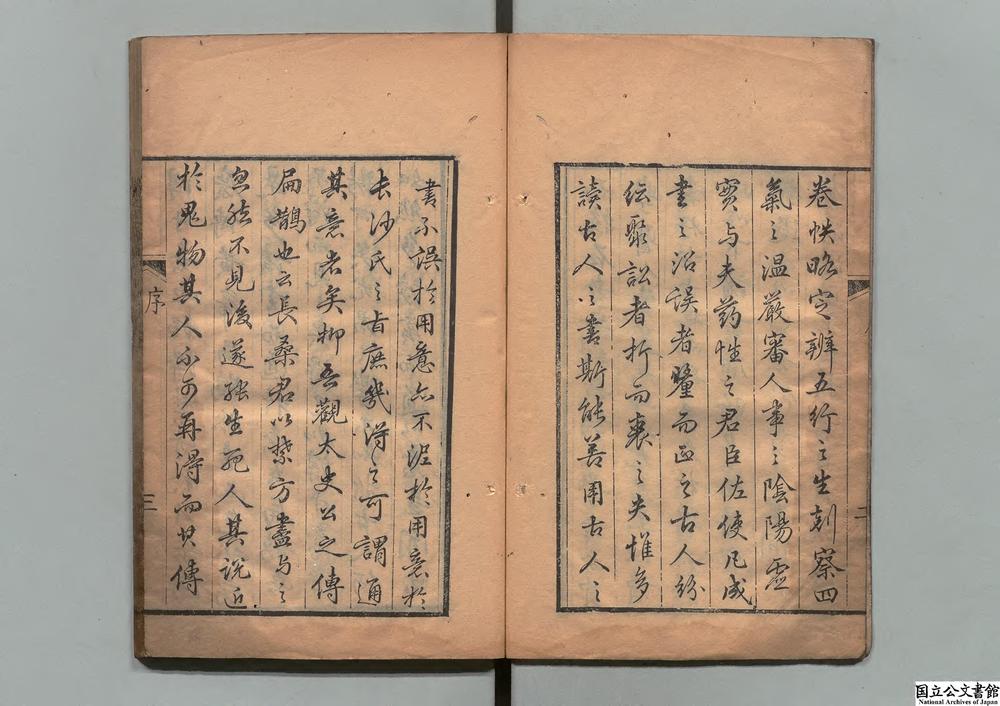 卷帙略定辨五行之生剋察四
氣之温嚴審人事之陰陽虛
實与夫药性之君臣佐使凡成
書之沿误者釐而正之古人紛
紜聚訟者折而衷之夫惟多
讀古人之書斯能善用古人之
二
書不误於用意亦不泥於用意於
长沙氏之旨庶幾得之可謂通
其意者矣抑吾觀太史公之傳
扁鵲也云長桑君以禁方盡与之
忽然不見後遂能生死人其說近
於鬼物其人不可再得而其傳
序
三
国立公文書館
National Archives of Japan